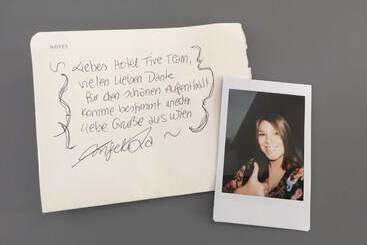 NOTES
Liebes Hotel Five Team,
vielen lieben Dank
für den schönen Aufenthalt
Komme bestimmt wieder
liebe Grüße aus Wien